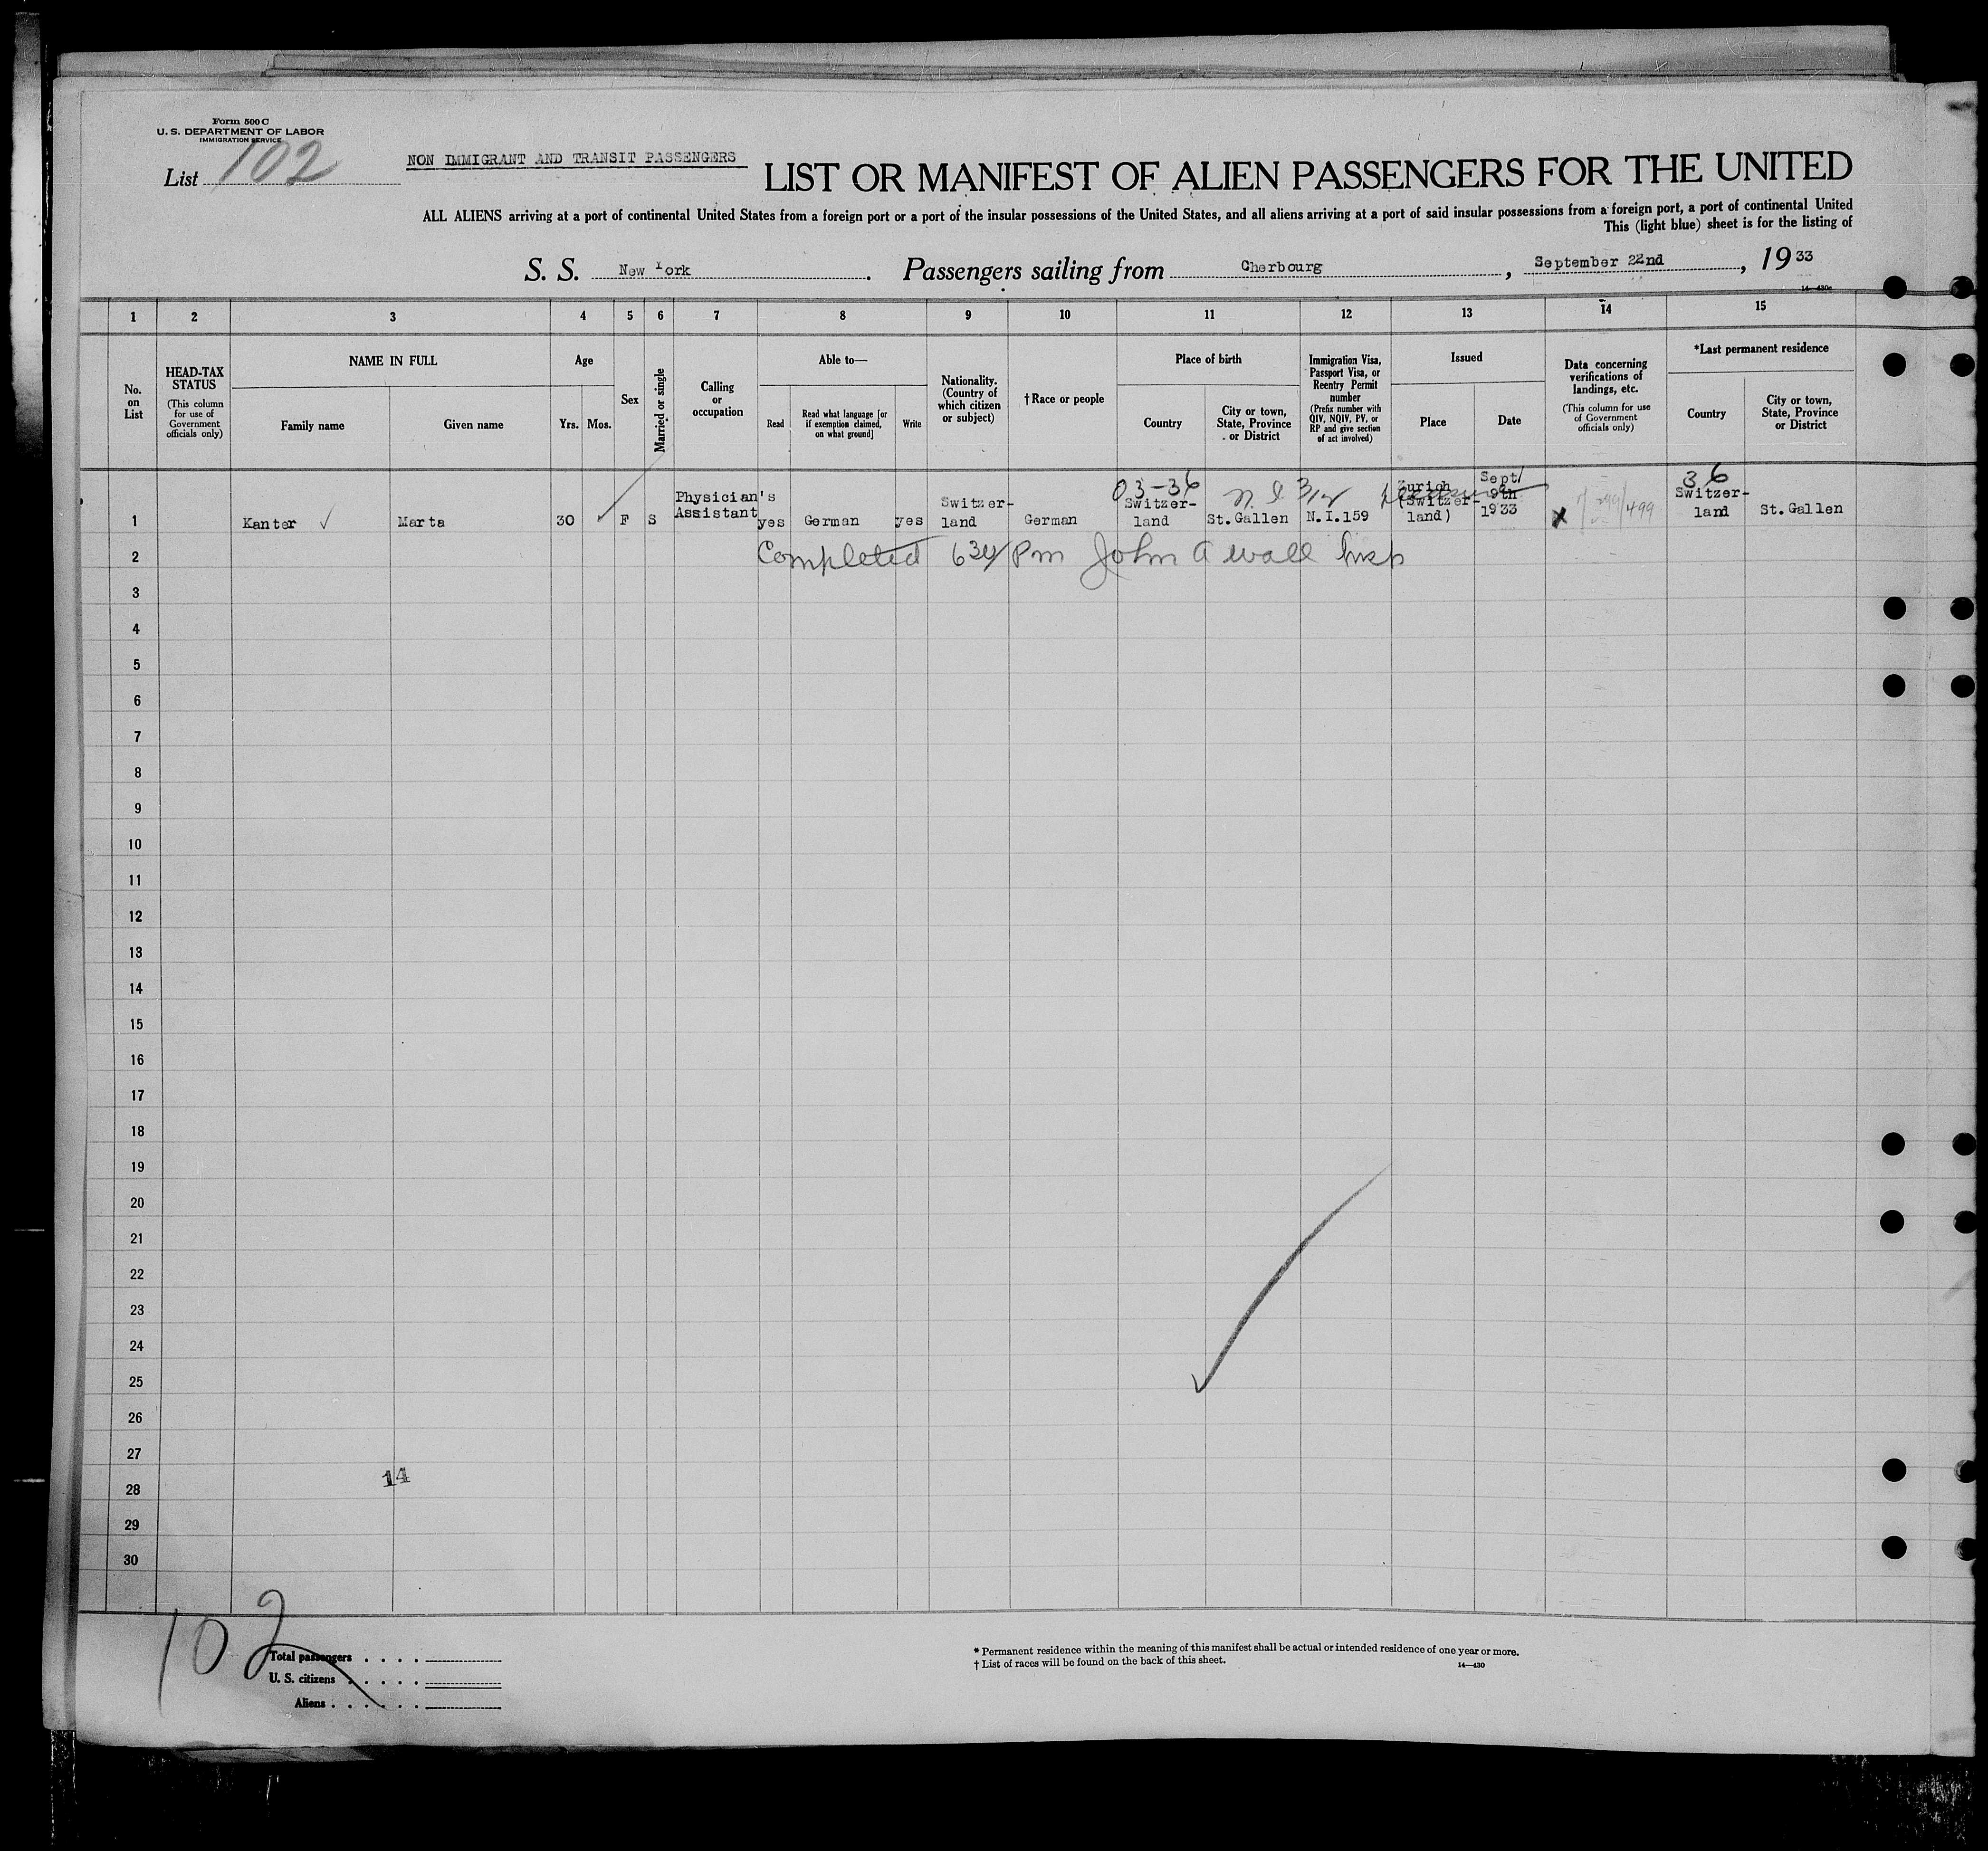 Form 500 C
U. S. DEPARTMENT OF LABOR
IMMIGRATION SERVICE
List 102
NON IMMIGRANT AND TRANSIT PASSENGERS
LIST OR MANIFEST OF ALIEN PASSENGERS FOR THE UNITED
ALL ALIENS arriving at a port of continental United States from a foreign port or a port of the insular possessions of the United States, and all aliens arriving at a port of said insular possessions from a foreign port, a port of continental United
This (light blue) sheet is for the listing of
S. S. New York. Passengers sailing from Cherbourg, September 22nd, 19 33
14—430c
1 2 3 4 5 6 7 8 9 10 11 12 13 14 15
No. on List
HEAD-TAX STATUS
(This column for use of Government officials only)
NAME IN FULL
Family name
Given name
Age
Yrs. Mos.
Sex
Married or single
Calling or occupation
Able to—
Read
Read what language [or if exemption claimed, on what ground]
Write
Nationality. (Country of which citizen or subject)
†Race or people
Place of birth
Country
City or town, State, Province or District
Immigration Visa, Passport Visa, or Reentry Permit number
(Prefix number with QIV, NQIV, PV, or RP and give section of act involved)
Issued
Place
Date
Data concerning verifications of landings, etc.
(This column for use of Government officials only)
*Last permanent residence
Country
City or town, State, Province or District
03-36
36
1 Kanter ✓ Marta 30 ✓ F S Physician's Assistant yes German yes Switzer-land German Switzer-land St. Gallen N.I.159 Zurich (Switzer-land) Sept/ 9th 1933 x 499 Switzer-land St. Gallen
2 Completed 630 Pm John A Wall Insp
3
4
5
6
7
8
9
10
11
12
13
14
15
16
17
18
19
20
21
22
23
24
25
26
27
14
28
29
30
102
Total passengers
U. S. citizens
Aliens
* Permanent residence within the meaning of this manifest shall be actual or intended residence of one year or more.
† List of races will be found on the back of this sheet.
14—430